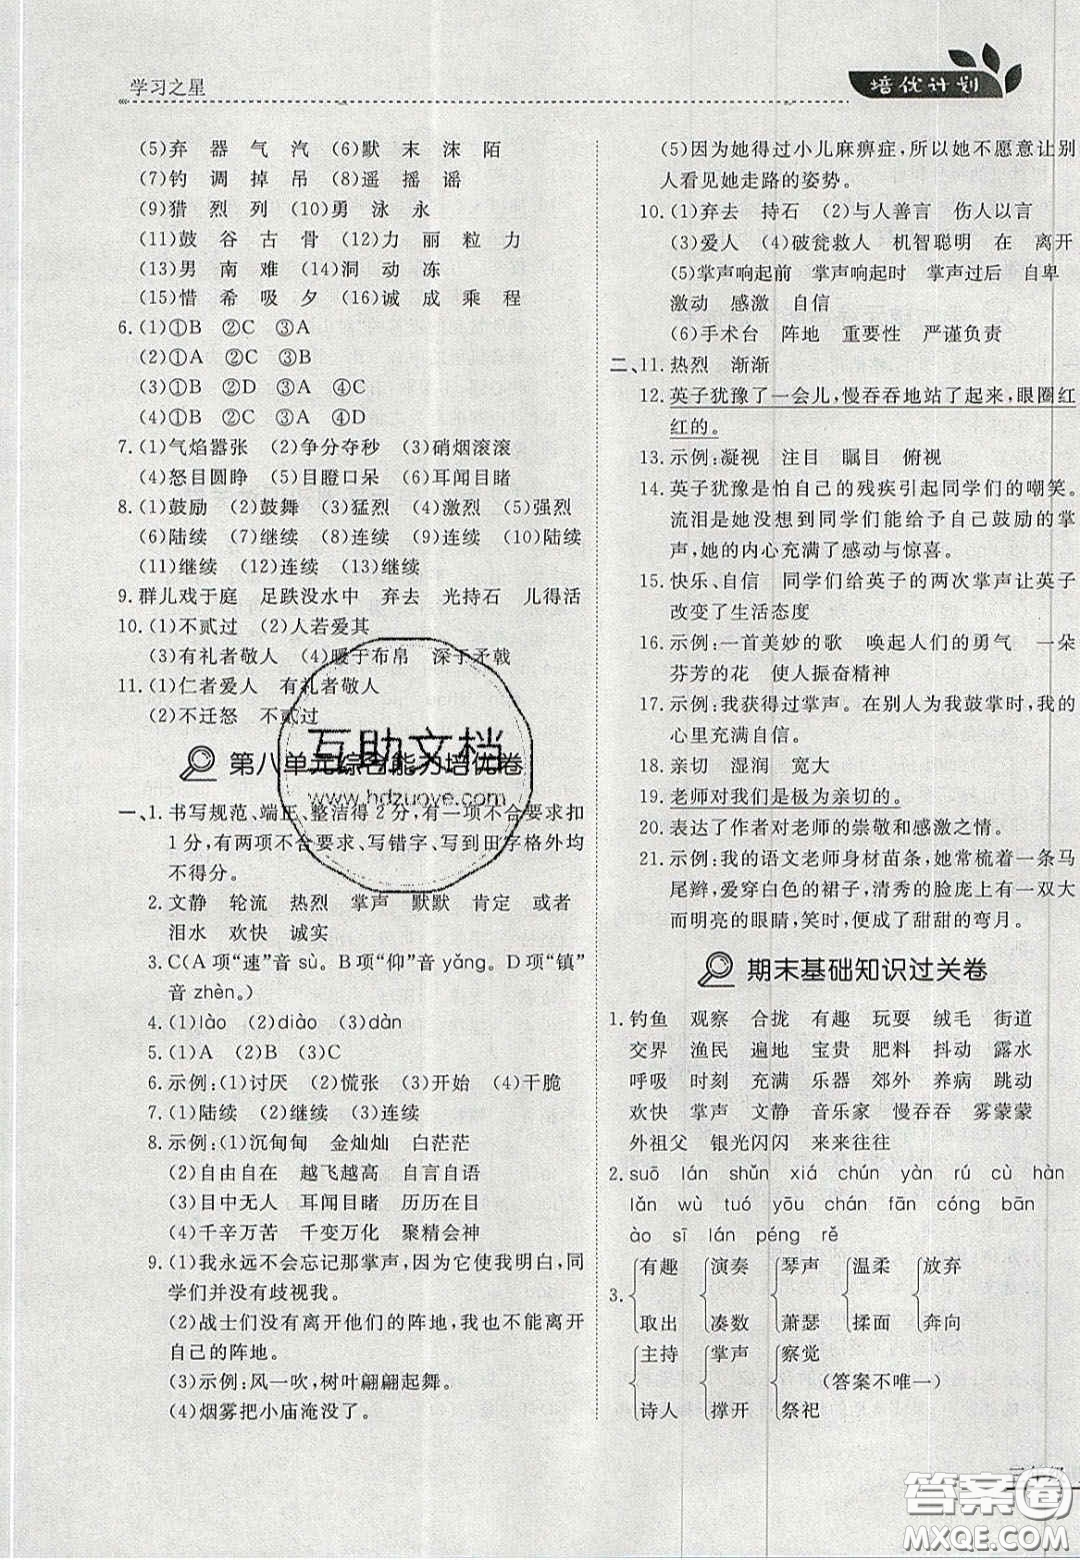 学习之星
培优计划
(5)弃 器 气 汽 (6)默 末 沫 陌
(7)钓 调 掉 吊 (8)遥 摇 谣
(9)猎 烈 列 (10)勇 泳 永
(11)鼓 谷 古 骨 (12)力 丽 粒 力
(13)男 南 难 (14)洞 动 冻
(15)惜 希 吸 夕 (16)诚 成 乘 程
6.(1)①B ②C ③A
(2)①A ②C ③B
(3)①B ②D ③A ④C
(4)①B ②C ③A ④D
7.(1)气焰嚣张 (2)争分夺秒 (3)硝烟滚滚
(4)怒目圆睁 (5)目瞪口呆 (6)耳闻目睹
8.(1)鼓励 (2)鼓舞 (3)猛烈 (4)激烈 (5)强烈
(6)陆续 (7)继续 (8)连续 (9)陆续 (10)陆续
(11)继续 (12)连续 (13)继续
9.群儿戏于庭 足跌没水中 弃去 光持石 儿得活
10.(1)不贰过 (2)人若爱其
(3)有礼者敬人 (4)暖于布帛 深于矛戟
11.(1)仁者爱人 有礼者敬人
(2)不迁怒 不贰过
第八单元综合能力培优卷
一、1.书写规范、端正、整洁得2分,有一项不合要求扣
1分,有两项不合要求、写错字、写到田字格外均
不得分。
2.文静 轮流 热烈 掌声 默默 肯定 或者
泪水 欢快 诚实
3.C(A项“速”音sù。B项“仰”音yǎng。D项“镇”
音zhèn。)
4.(1)lào (2)diào (3)dàn
5.(1)A (2)B (3)C
6.示例:(1)讨厌 (2)慌张 (3)开始 (4)干脆
7.(1)陆续 (2)继续 (3)连续
8.示例:(1)沉甸甸 金灿灿 白茫茫
(2)自由自在 越飞越高 自言自语
(3)目中无人 耳闻目睹 历历在目
(4)千辛万苦 千变万化 聚精会神
9.(1)我永远不会忘记那掌声,因为它使我明白,同
学们并没有歧视我。
(2)战士们没有离开他们的阵地,我也不能离开
自己的阵地。
(3)示例:风一吹,树叶翩翩起舞。
(4)烟雾把小庙淹没了。
(5)因为她得过小儿麻痹症,所以她不愿意让别
人看见她走路的姿势。
10.(1)弃去 持石 (2)与人善言 伤人以言
(3)爱人 (4)破瓮救人 机智聪明 在 离开
(5)掌声响起前 掌声响起时 掌声过后 自卑
激动 感激 自信
(6)手术台 阵地 重要性 严谨负责
二、11.热烈 渐渐
12.英子犹豫了一会儿,慢吞吞地站了起来,眼圈红
红的。
13.示例:凝视 注目 瞩目 俯视
14.英子犹豫是怕自己的残疾引起同学们的嘲笑。
流泪是她没想到同学们能给予自己鼓励的掌
声,她的内心充满了感动与惊喜。
15.快乐、自信 同学们给英子的两次掌声让英子
改变了生活态度
16.示例:一首美妙的歌 唤起人们的勇气 一朵
芬芳的花 使人振奋精神
17.示例:我获得过掌声。在别人为我鼓掌时,我的
心里充满自信。
18.亲切 湿润 宽大
19.老师对我们是极为亲切的。
20.表达了作者对老师的崇敬和感激之情。
21.示例:我的语文老师身材苗条,她常梳着一条马
尾辫,爱穿白色的裙子,清秀的脸庞上有一双大
而明亮的眼睛,笑时,便成了甜甜的弯月。
期末基础知识过关卷
1.钓鱼 观察 合拢 有趣 玩耍 绒毛 街道
交界 渔民 遍地 宝贵 肥料 抖动 露水
呼吸 时刻 充满 乐器 郊外 养病 跳动
欢快 掌声 文静 音乐家 慢吞吞 雾蒙蒙
外祖父 银光闪闪 来来往往
2.suō lán shǔn xiá chún yàn rú cù hàn
lǎn wù tuó yōu chán fān cóng bān
ào sī lán péng rě
有趣 演奏 琴声 温柔 放弃
3.
取出 凑数 萧瑟 揉面 奔向
主持 掌声 察觉
(答案不唯一)
诗人 撑开 祭祀
互助文档
www.hdzuoye.com
答案圈
MXQE.COM